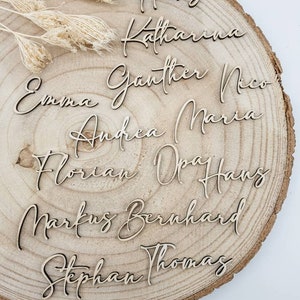 Katharina
Günther
Nico
Emma
Maria
Andrea
Florian
Opa
Hans
Markus
Bernhard
Stephan
Thomas